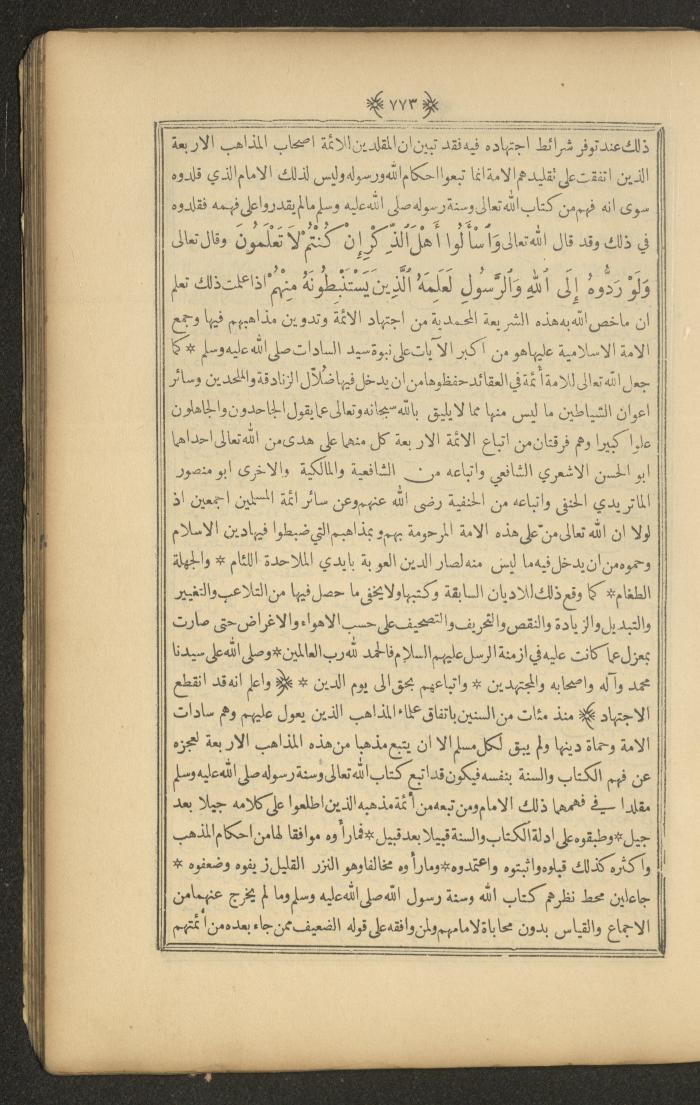 ﴿ ٧٧٣ ﴾
ذلك عند توفر شرائط اجتهاده فيه فقد تبين ان المقلدين الائمة اصحاب المذاهب الاربعة
الذين اتفقت على تقليدهم الامة انما تبعوا احكام الله ورسوله وليس لذلك الامام الذي قلدوه
سوى انه فهم من كتاب الله تعالى وسنة رسوله صلى الله عليه وسلم ما لم يقدروا على فهمه فقلدوه
في ذلك وقد قال الله تعالى وَٱسْأَلُوا أَهْلَ ٱلذِّكْرِ إِنْ كُنْتُمْ لَا تَعْلَمُونَ وقال تعالى
وَلَوْ رَدُّوهُ إِلَى ٱللهِ وَٱلرَّسُولِ لَعَلِمَهُ ٱلَّذِينَ يَسْتَنْبِطُونَهُ مِنْهُمْ اذا علمت ذلك تعلم
ان ما خص الله به هذه الشريعة المحمدية من اجتهاد الائمة وتدوين مذاهبهم فيها وجمع
الامة الاسلامية عليها هو من اكبر الآيات على نبوة سيد السادات صلى الله عليه وسلم * كما
جعل الله تعالى للامة أئمة في العقائد حفظوها من ان يدخل فيها ضُلّال الزنادقة والملحدين وسائر
اعوان الشياطين ما ليس منها مما لا يليق بالله سبحانه وتعالى عما يقول الجاحدون والجاهلون
علوا كبيرا وهم فرقتان من اتباع الائمة الاربعة كل منهما على هدى من الله تعالى احداهما
ابو الحسن الاشعري الشافعي واتباعه من الشافعية والمالكية والاخرى ابو منصور
الماتريدي الحنفي واتباعه من الحنفية رضى الله عنهم وعن سائر ائمة المسلمين اجمعين اذ
لولا ان الله تعالى منّ على هذه الامة المرحومة بهم وبمذاهبهم التي ضبطوا فيها دين الاسلام
وحموه من ان يدخل فيه ما ليس منه لصار الدين العوبة بايدي الملاحدة اللئام * والجهلة
الطغام * كما وقع ذلك للاديان السابقة وكتبها ولا يخفى ما حصل فيها من التلاعب والتغيير
والتبديل والزيادة والنقص والتحريف والتصحيف على حسب الاهواء والاغراض حتى صارت
بمعزل عما كانت عليه في ازمنة الرسل عليهم السلام فالحمد لله رب العالمين * وصلى الله على سيدنا
محمد وآله واصحابه والمجتهدين * واتباعهم بحق الى يوم الدين * ﴿ واعلم انه قد انقطع
الاجتهاد ﴾ منذ مئات من السنين باتفاق علماء المذاهب الذين يعول عليهم وهم سادات
الامة وحماة دينها ولم يبق لكل مسلم الا ان يتبع مذهبا من هذه المذاهب الاربعة لعجزه
عن فهم الكتاب والسنة بنفسه فيكون قد اتبع كتاب الله تعالى وسنة رسوله صلى الله عليه وسلم
مقلدا في فهمهما ذلك الامام ومن تبعه من أئمة مذهبه الذين اطلعوا على كلامه جيلا بعد
جيل * وطبقوه على ادلة الكتاب والسنة قبيلا بعد قبيل * فما رأوه موافقا لها من احكام المذهب
واكثره كذلك قبلوه واثبتوه واعتمدوه * وما رأوه مخالفا وهو النزر القليل زيفوه وضعفوه *
جاعلين محط نظرهم كتاب الله وسنة رسول الله صلى الله عليه وسلم وما لم يخرج عنهما من
الاجماع والقياس بدون محاباة لامامهم ولمن وافقه على قوله الضعيف ممن جاء بعده من أئمتهم